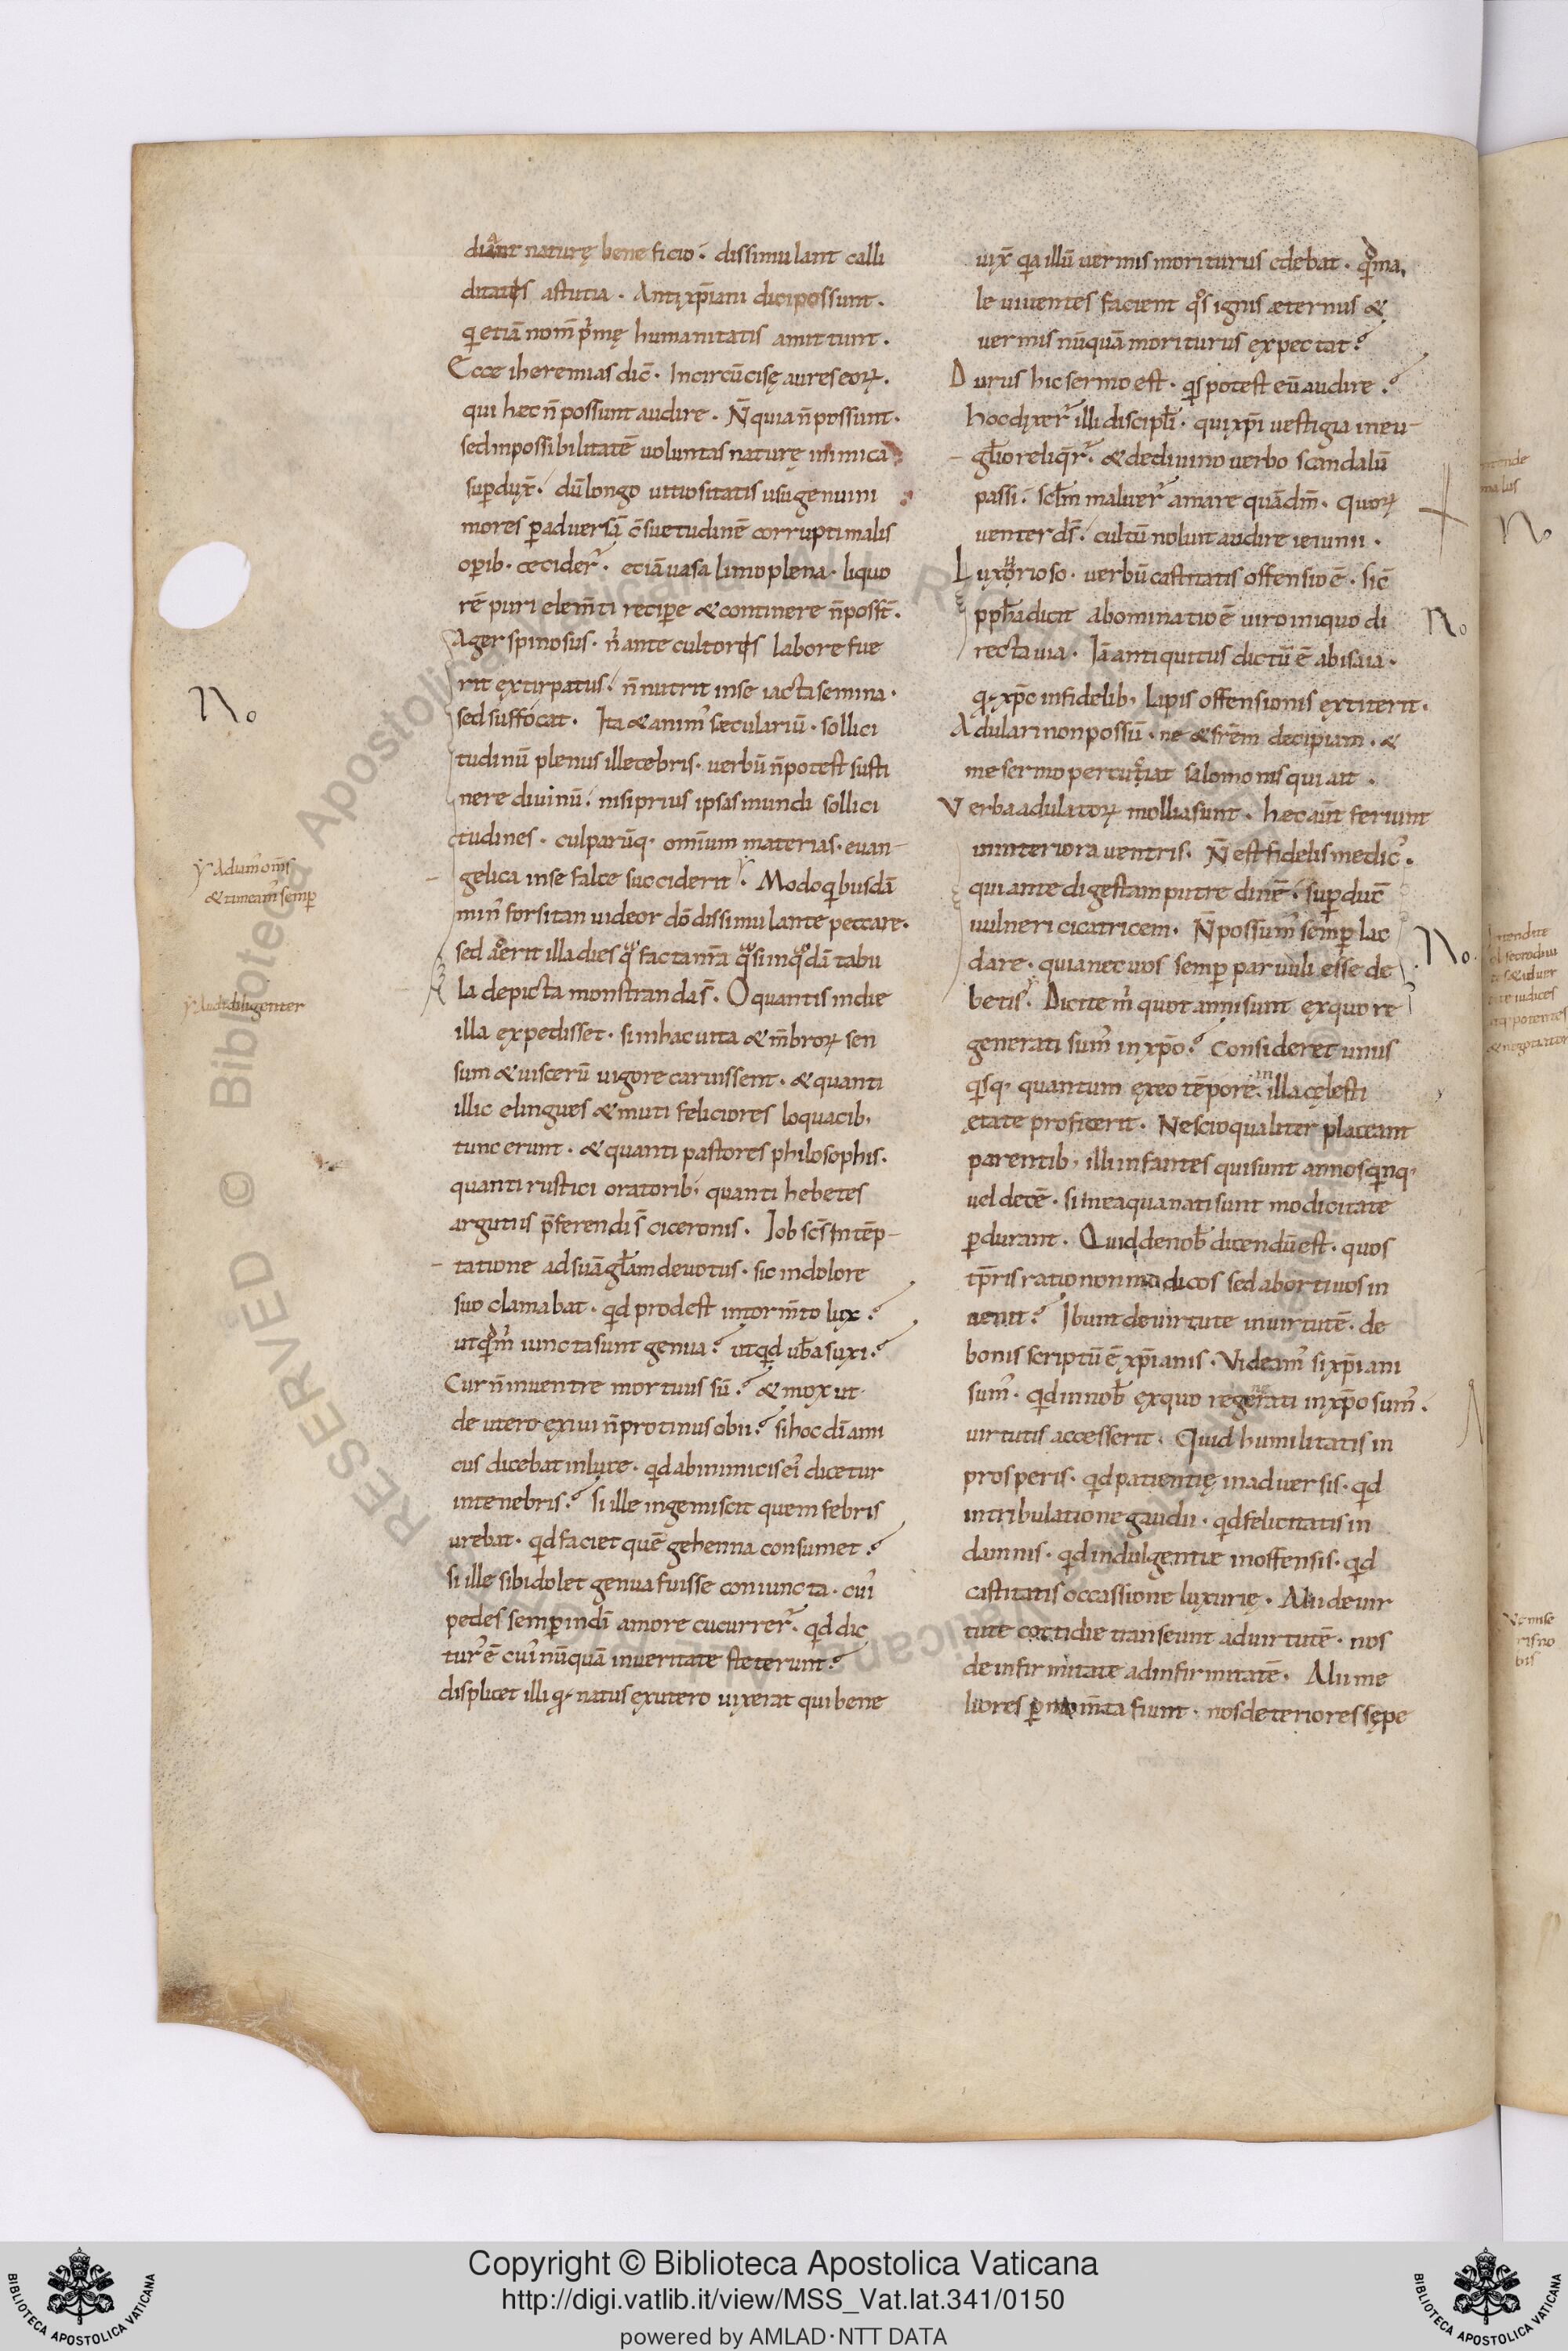 diant naturę beneficio. dissimulant calli
ditatis astutia. Antixp̄iani dici possunt.
q etiā nom̄ p̄mę humanitatis amittunt.
Ecce iheremias dic̄. Incircūcisę aures eoꝝ.
qui hec n̄ possunt audire. N̄ quia n̄ possunt.
sed inpossibilitatē uoluntas naturę inimica
superduxꝉ. dū longo uitiositatis usu genuini
mores ꝑ aduersā c̄suetudinē corrupti malis
oꝑib. cecider̄. etiā uasa limo plena. liquo
rē puri elem̄ti reciꝑe & continere n̄ poss̄t.
Ager spinosus. n̄ ante cultoris labore fue
rit extirpatus. n̄ nutrit in se iacta semina.
sed suffocat. Ita & anim᾿ sęculariū. sollici
tudinū plenus illecebris. uerbū n̄ potest susti
nere diuinū. nisi prius ipsas mundi sollici
tudines. culparūq. omnium materias. euan-
gelica in se falce succiderit. Modo qbusdā
min᾿ forsitan uideor dō dissimulante peccare.
sed aderit illa dies q facta nr̄a qͣsi in qͣdā tabu
la depicta monstranda s̄. O quantis in die
illa expedisset. si in hac uita & m̄broꝝ sen
sum & uiscerū uigore caruissent. & quanti
illic elingues & muti feliciores loquacib;
tunc erunt. & quanti pastores philosophis.
quanti rustici oratorib; quanti hebetes
argutiis p̄ferendi s̄ ciceronis. Iob sc̄s In tēp-
tatione ad suā gl̄am deuotus. sic in dolore
suo clamabat. qd prodest in torm̄to lux?
ut qd m̄ iuncta sunt genua? ut qd ub̄a suxi?
Cur n̄ in uentre mortuus sū? & mox ut
de utero exiui n̄ protinus obii? si hoc dī ami
cus dicebat in luce. qd ab inimicis ei᾿ dicetur
in tenebris? si ille ingemiscit quem febris
urebat. qd faciet quē gehenna consumet?
si ille sibi dolet genua fuisse coniuncta. cui᾿
pedes semꝑ in dī amore cucurrer̄. qd dic
tur᾿ ē cui᾿ nūquā in ueritate steterunt?
displicet illi q natus ex utero uixerat qui bene
uixꝉ qa illū uermis moriturus edebat. qd ma
le uiuentes facient qͦs ignis æternus &
uermis nūquā moriturus expectat?
Durus hic sermo est. qs potest eū audire?
hoc dixer̄ illi discipl̄i. qui xp̄i uestigia in eu-
gl̄io reliqr̄. & de diuino uerbo scandalū
passi. scl̄m maluer̄ amare quā dm̄. Quoꝝ
uenter ds̄. cultū nolunt audire ieiunii.
Luxorioso. uerbū castitatis offensio ē. sic̄
ppħa dicit abominatio ē uiro iniquo di
recta uia. Iā antiquitus dictū ē ab isaia.
q xp̄c infidelib; lapis offensionis extiterit.
Adulari non possū. ne & frēm decipiam. &
me sermo percutiat salomonis qui ait.
Verba adulatoꝝ mollia sunt. hec aūt feriunt
in interiora uentris. N̄ est fidelis medic᾿.
qui ante digestam putredinē. suꝑduc̄
uulneri cicatricem. N̄ possum᾿ semꝑ lac
dare. quia nec uos semꝑ paruuli esse de
betis. Dicite m̄ quot anni sunt ex quo re
generati sum᾿ in xp̄o? Consideret unus
qsq. quantum ex eo tēpore in illa cęlesti
etate proficerit. Nescio qualiter placeant
parentib; illi infantes qui sunt annos qnq.
uel decē. si in ea qua nati sunt modicitate
ꝑdurant. Quid de nob̄ dicendū est. quos
tp̄ris ratio non modicos sed abortiuos in
uenit? Ibunt de uirtute in uirtutē. de
bonis scriptū ē xp̄ianis. Videam᾿ si xp̄iani
sum᾿. qd in nob̄ ex quo regenerati in xp̄o sum᾿.
uirtutis accesserit. Quid humilitatis in
prosperis. qd patientię in aduersis. qd
in tribulatione gaudii. qd felicitatis in
damnis. qd indulgentiæ in offensis. qd
castitatis occassione luxurię. Alii de uir
tute cottidie transeunt ad uirtutē. nos
de infirmitate ad infirmitatē. Alii me
liores ꝑ mom̄ta fiunt. nos deteriores sępe
No
Adium᾿ om̄s
& timeam᾿ semꝑ
Audi diligenter
No
No
No
Copyright © Biblioteca Apostolica Vaticana
http://digi.vatlib.it/view/MSS_Vat.lat.341/0150
powered by AMLAD·NTT DATA
BIBLIOTECA APOSTOLICA VATICANA
BIBLIOTECA APOSTOLICA VATICANA